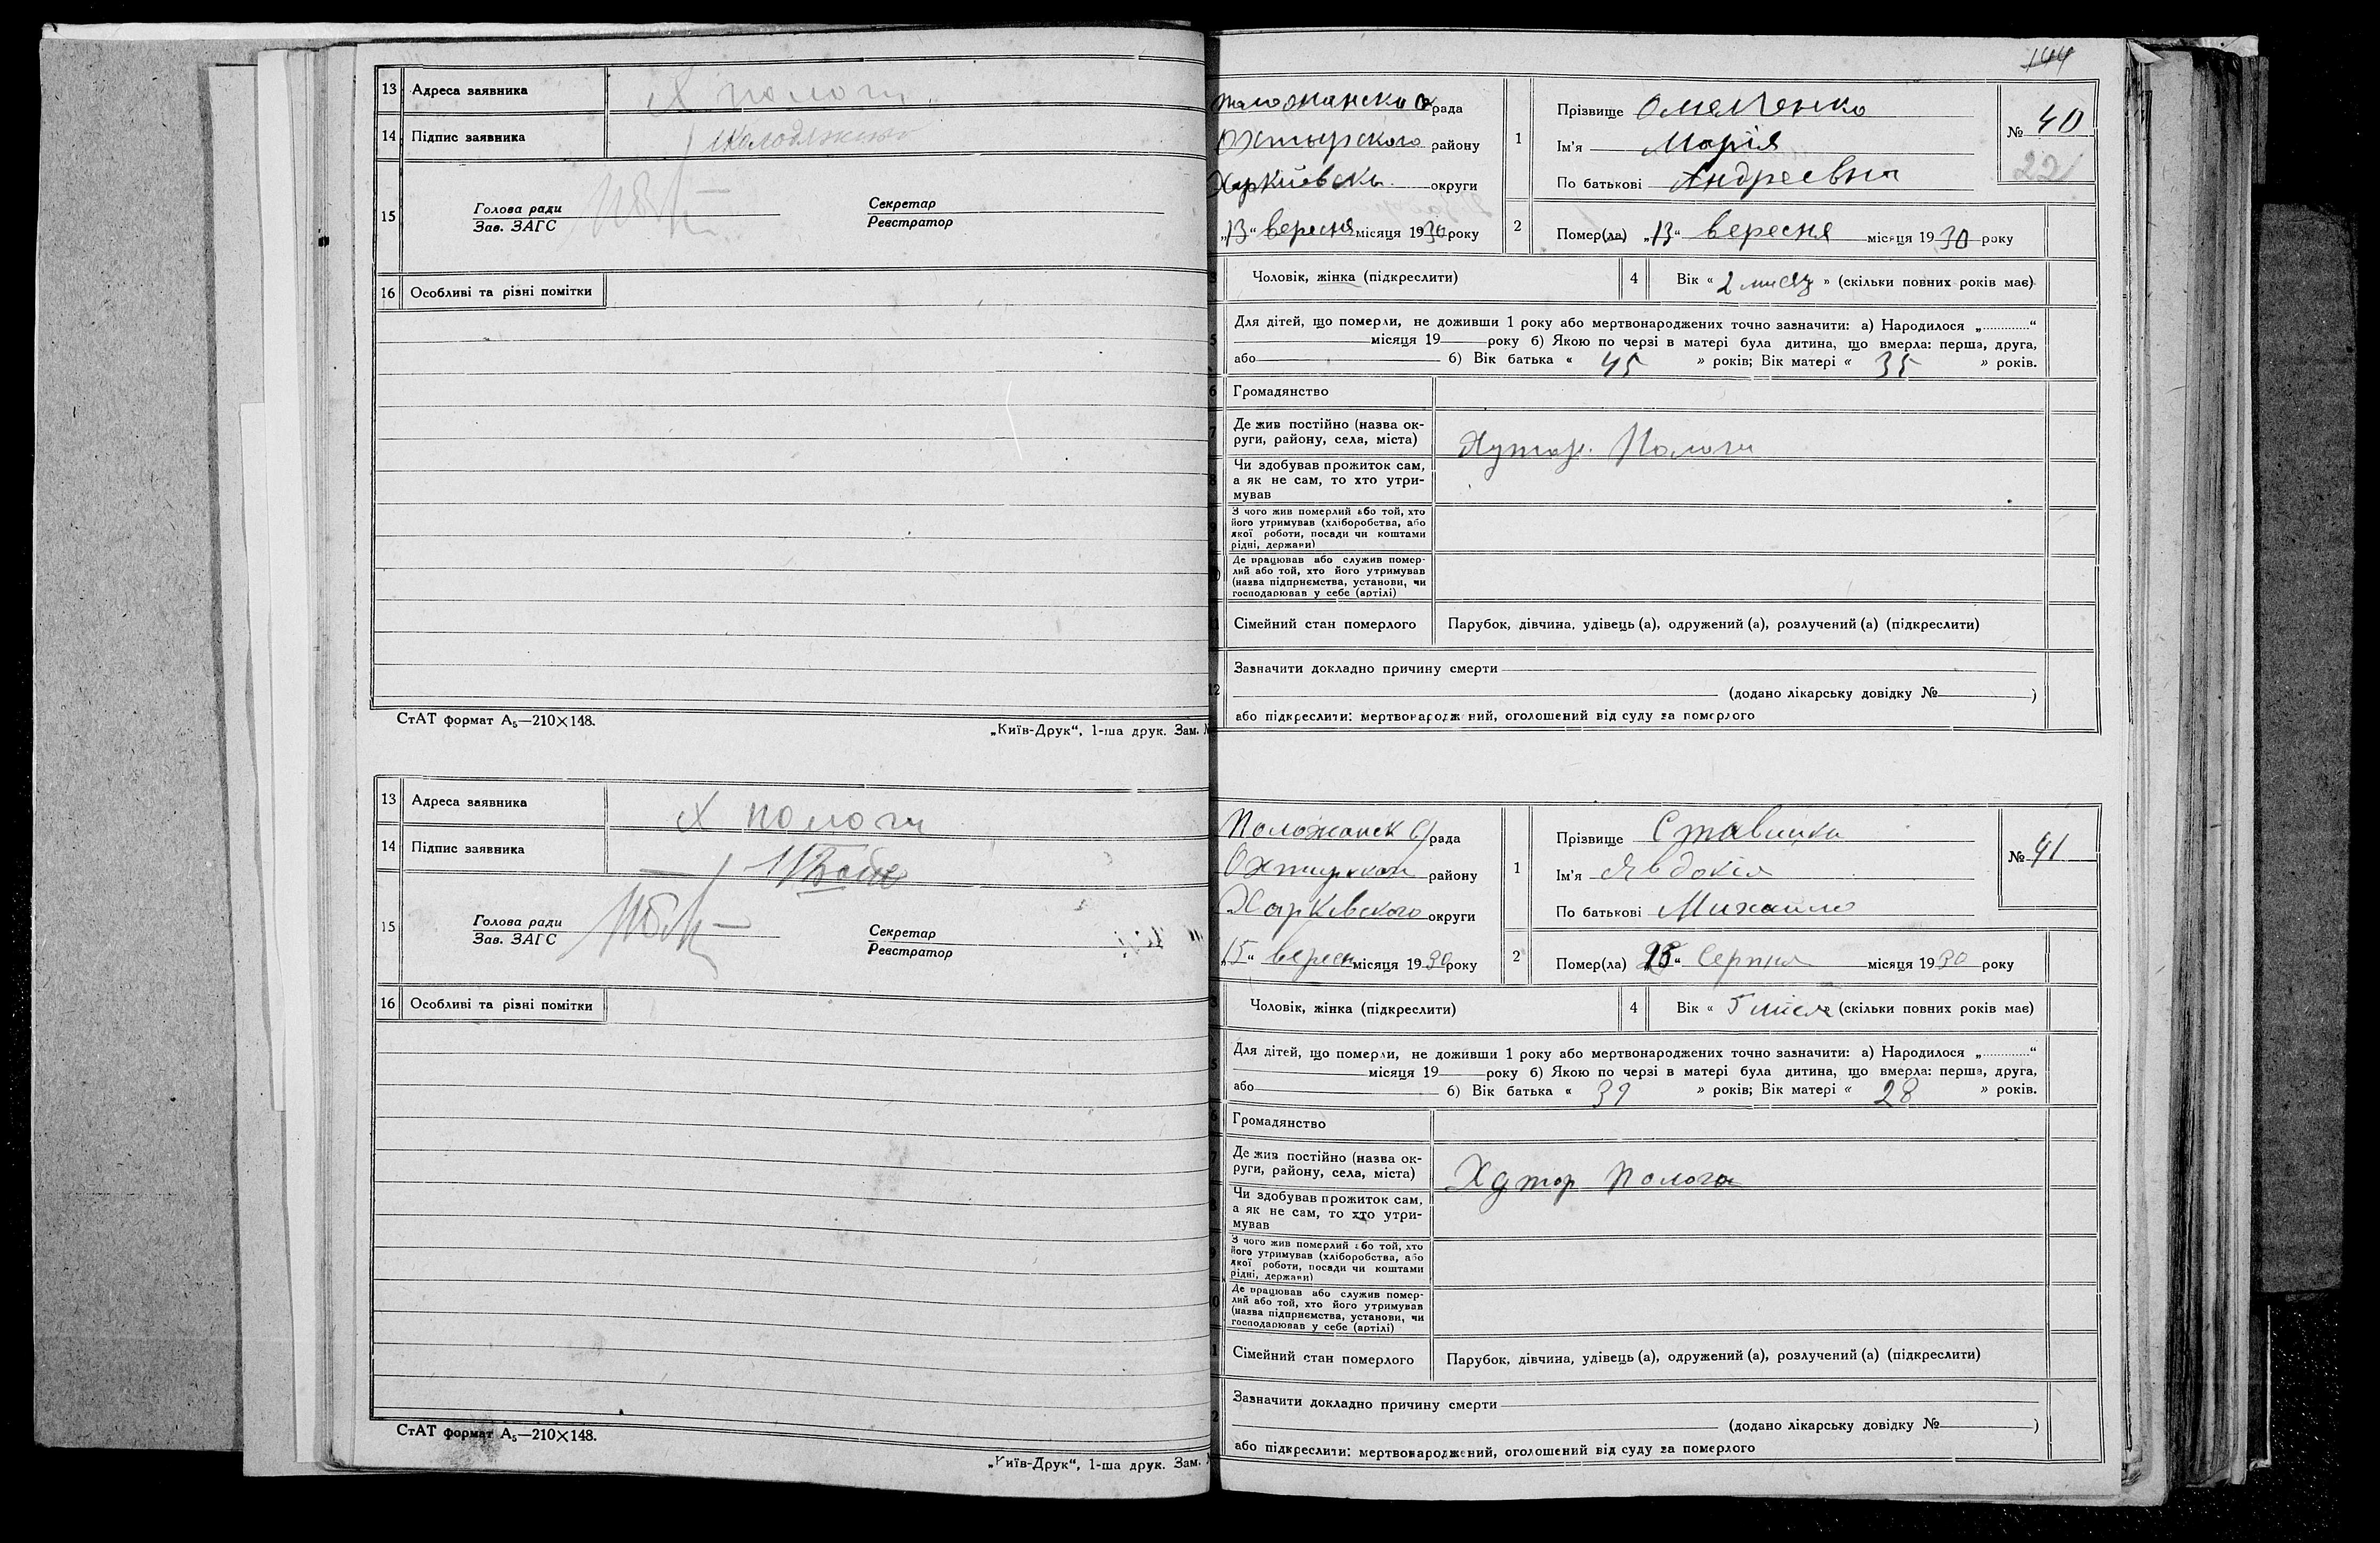 13 Адреса заявника Х пологи
14 Підпис заявника
15 Голова ради
Зав. ЗАГС
Секретар
Реєстратор
16 Особливі та різні помітки
СтАТ формат А₅—210×148.
„Київ-Друк“, 1-ша друк. Зам.
13 Адреса заявника Х пологи
14 Підпис заявника
15 Голова ради
Зав. ЗАГС
Секретар
Реєстратор
16 Особливі та різні помітки
СтАТ формат А₅—210×148.
„Київ-Друк“, 1-ша друк. Зам.
144
рада
Охтырского району
округи
„13“ вересня місяця 1930 року
1 Прізвище Омельченко
Ім'я Марія
По батькові Андреевна
№ 40
22
2 Помер(ла) „13“ вересня місяця 1930 року
Чоловік, жінка (підкреслити)
4 Вік « 2 » (скільки повних років має)
Для дітей, що померли, не доживши 1 року або мертвонароджених точно зазначити: а) Народилося „.............“
місяця 19 року б) Якою по черзі в матері була дитина, що вмерла: перша, друга,
або в) Вік батька « 45 » років; Вік матері « 35 » років.
6 Громадянство
7 Де жив постійно (назва ок-
руги, району, села, міста) Хутор. Пологи
8 Чи здобував прожиток сам,
а як не сам, то хто утри-
мував
З чого жив померлий або той, хто
його утримував (хліборобства, або
якої роботи, посади чи коштами
рідні, держави)
Де працював або служив помер-
лий або той, хто його утримував
(назва підприємства, установи, чи
господарював у себе (артілі)
Сімейний стан померлого Парубок, дівчина, удівець (а), одружений (а), розлучений (а) (підкреслити)
12 Зазначити докладно причину смерти
(додано лікарську довідку № )
або підкреслити: мертвонароджений, оголошений від суду за померлого
рада
району
Харкивского округи
„15“ вересн місяця 1930 року
1 Прізвище Ставицка
Ім'я Явдокія
По батькові Михаило
№ 41
2 Помер(ла) серпня місяця 1930 року
Чоловік, жінка (підкреслити)
4 Вік « 5 (скільки повних років має)
Для дітей, що померли, не доживши 1 року або мертвонароджених точно зазначити: а) Народилося „.............“
місяця 19 року б) Якою по черзі в матері була дитина, що вмерла: перша, друга,
або в) Вік батька « 39 » років; Вік матері « 28 » років.
Громадянство
Де жив постійно (назва ок-
руги, району, села, міста) Хутор Полога
Чи здобував прожиток сам,
а як не сам, то хто утри-
мував
З чого жив померлий або той, хто
його утримував (хліборобства, або
якої роботи, посади чи коштами
рідні, держави)
Де працював або служив помер-
лий або той, хто його утримував
(назва підприємства, установи, чи
господарював у себе (артілі)
Сімейний стан померлого Парубок, дівчина, удівець (а), одружений (а), розлучений (а) (підкреслити)
Зазначити докладно причину смерти
(додано лікарську довідку № )
або підкреслити: мертвонароджений, оголошений від суду за померлого